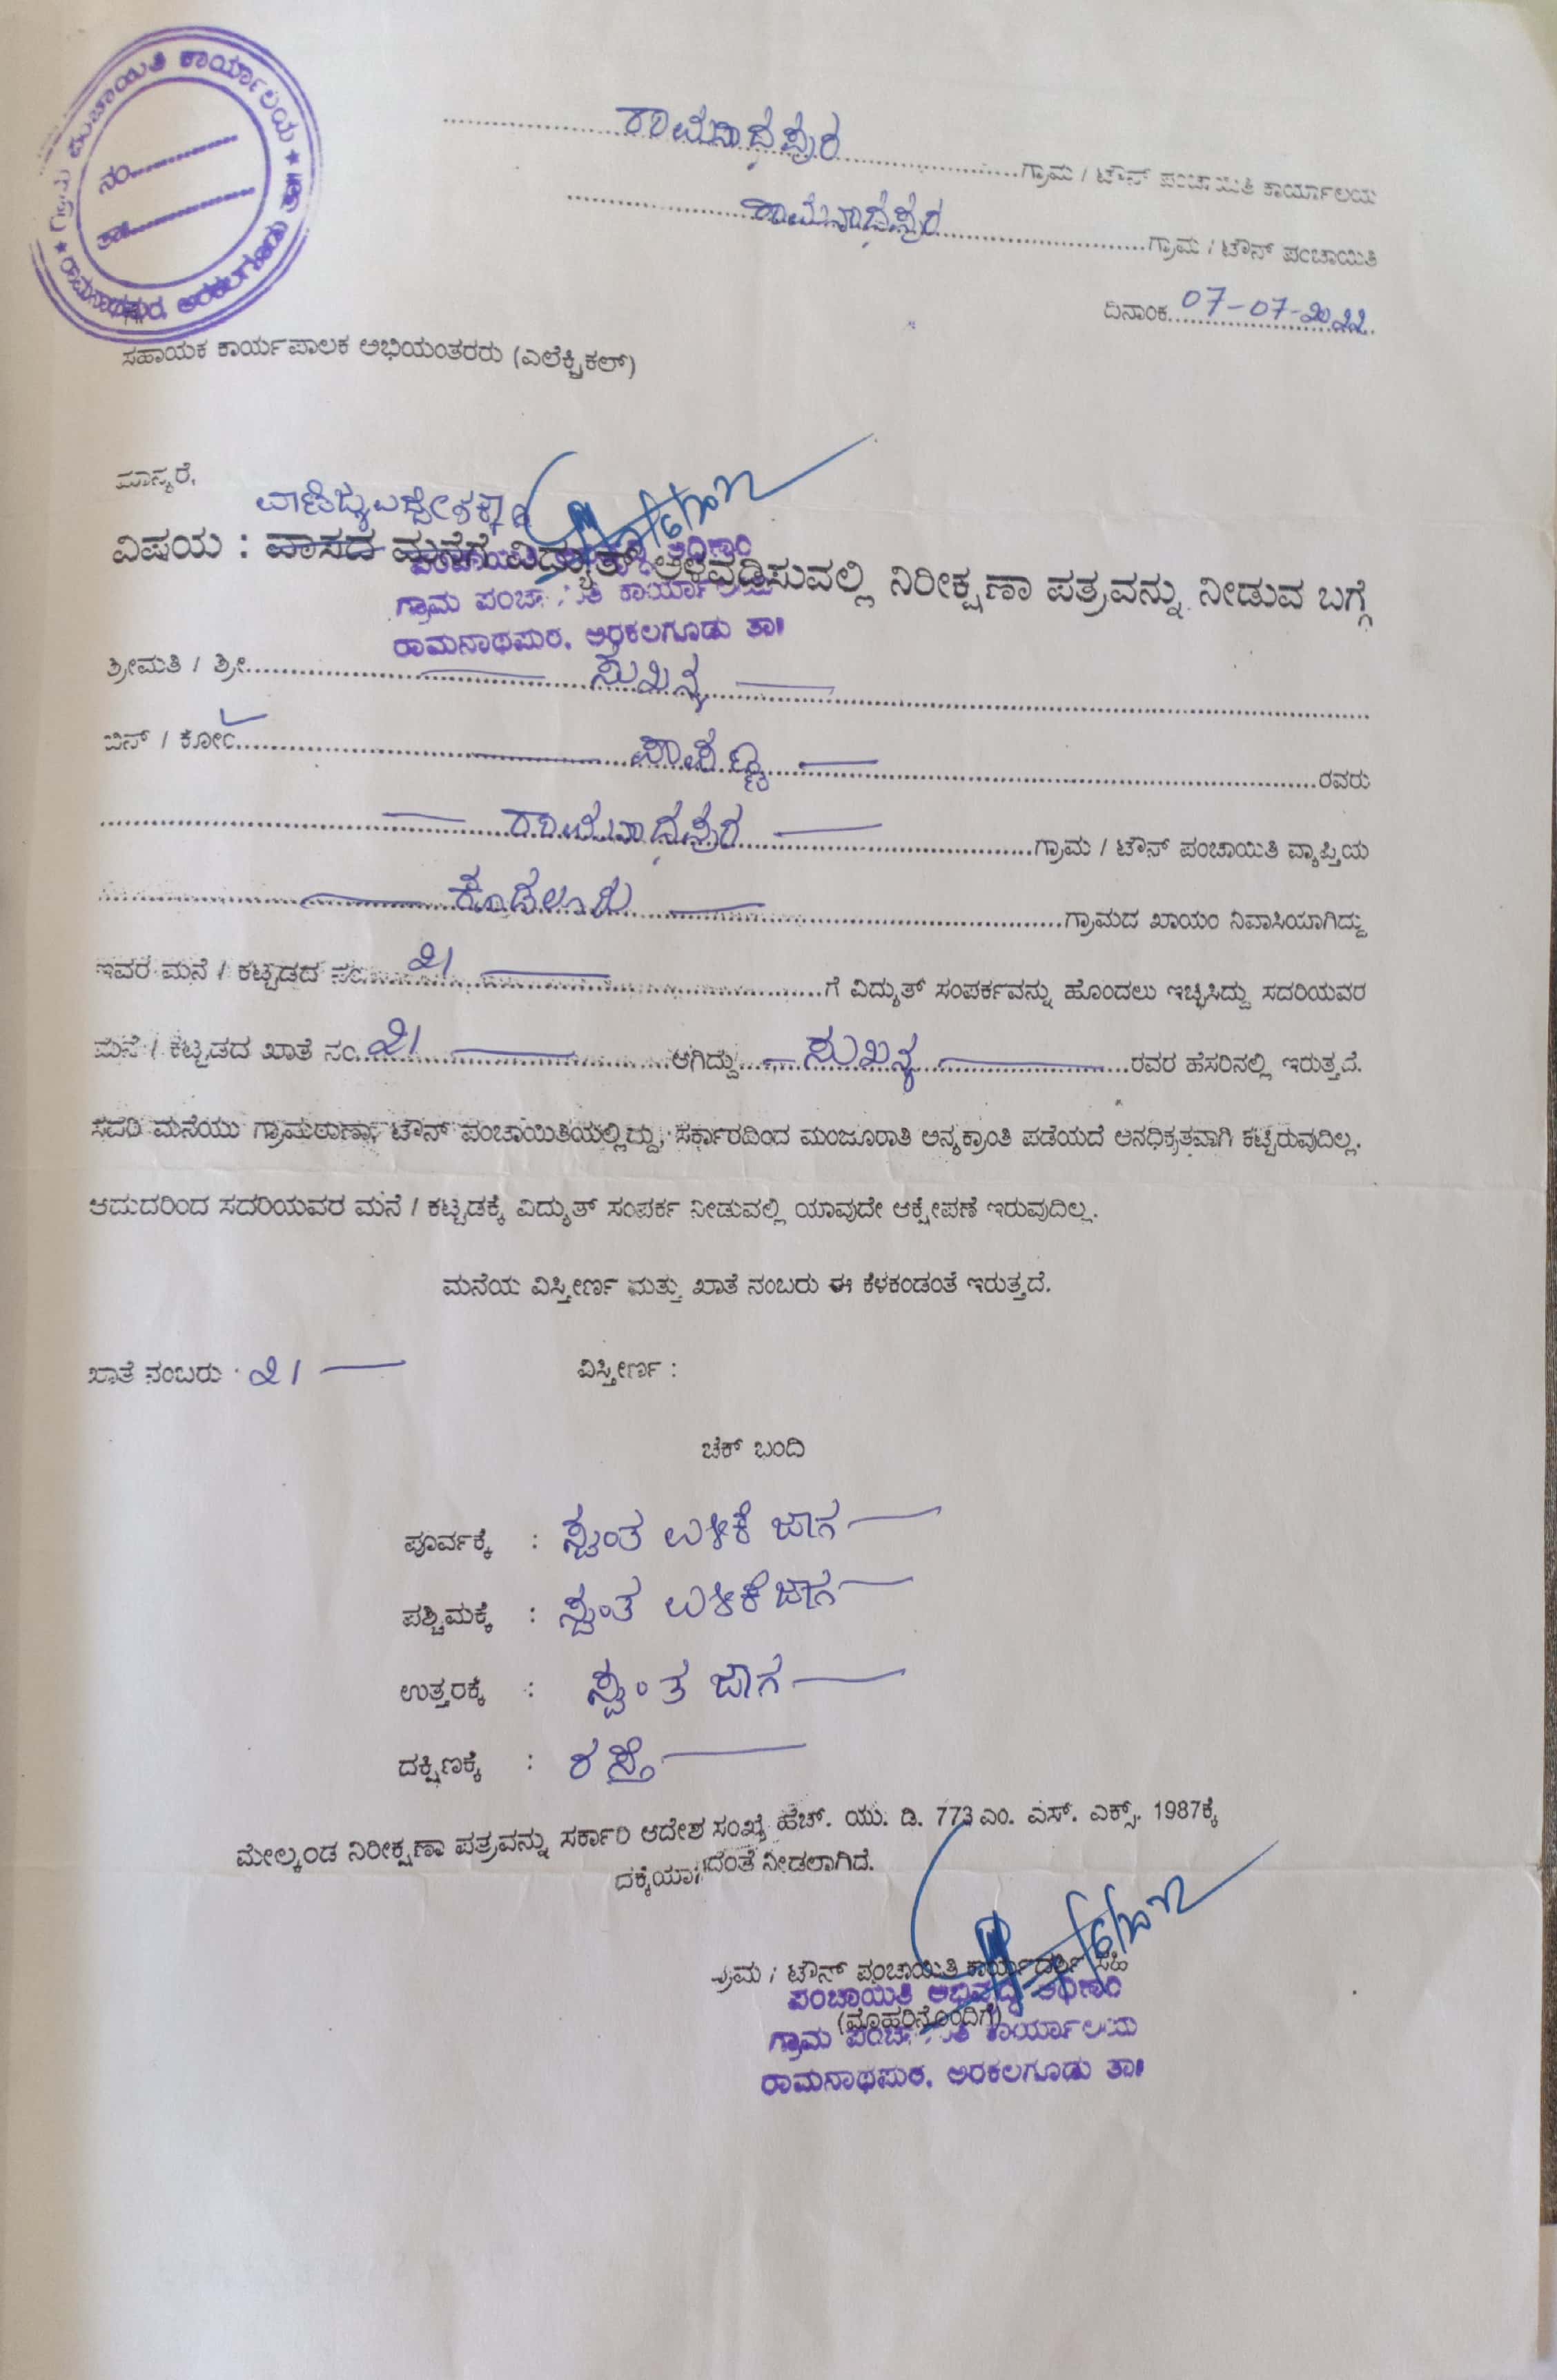 ಗ್ರಾಮ ಪಂಚಾಯಿತಿ ಕಾರ್ಯಾಲಯ ★
★ ರಾಮನಾಥಪುರ, ಅರಕಲಗೂಡು ತಾಃ
ನಂ..........
ತಾಃ..........
ರಾಮನಾಥಪುರ ಗ್ರಾಮ / ಟೌನ್ ಪಂಚಾಯಿತಿ ಕಾರ್ಯಾಲಯ
ರಾಮನಾಥಪುರ ಗ್ರಾಮ / ಟೌನ್ ಪಂಚಾಯಿತಿ
ದಿನಾಂಕ 07-07-2022
ಸಹಾಯಕ ಕಾರ್ಯಪಾಲಕ ಅಭಿಯಂತರರು (ಎಲೆಕ್ಟ್ರಿಕಲ್)
ಮಾನ್ಯರೆ,
ವಾಣಿಜ್ಯ
ವಿಷಯ : ವಾಸದ ಮನೆಗೆ ವಿದ್ಯುತ್ ಅಳವಡಿಸುವಲ್ಲಿ ನಿರೀಕ್ಷಣಾ ಪತ್ರವನ್ನು ನೀಡುವ ಬಗ್ಗೆ
ಗ್ರಾಮ ಪಂಚಾಯಿತಿ ಕಾರ್ಯಾಲಯ
ರಾಮನಾಥಪುರ, ಅರಕಲಗೂಡು ತಾಃ
ಶ್ರೀಮತಿ / ಶ್ರೀ ಸುಖನ್ಯ
ಬಿನ್ / ಕೋಂ ಪಾಪಣ್ಣ ರವರು
ರಾಮನಾಥಪುರ ಗ್ರಾಮ / ಟೌನ್ ಪಂಚಾಯಿತಿ ವ್ಯಾಪ್ತಿಯ
ಕೊಡಲೂರು ಗ್ರಾಮದ ಖಾಯಂ ನಿವಾಸಿಯಾಗಿದ್ದು
ಇವರ ಮನೆ / ಕಟ್ಟಡದ ನಂ 21 ಗೆ ವಿದ್ಯುತ್ ಸಂಪರ್ಕವನ್ನು ಹೊಂದಲು ಇಚ್ಛಿಸಿದ್ದು ಸದರಿಯವರ
ಮನೆ / ಕಟ್ಟಡದ ಖಾತೆ ನಂ 21 ಆಗಿದ್ದು ಸುಖನ್ಯ ರವರ ಹೆಸರಿನಲ್ಲಿ ಇರುತ್ತದೆ.
ಸದರಿ ಮನೆಯು ಗ್ರಾಮಠಾಣಾ, ಟೌನ್ ಪಂಚಾಯಿತಿಯಲ್ಲಿದ್ದು, ಸರ್ಕಾರದಿಂದ ಮಂಜೂರಾತಿ ಅನ್ಯಕ್ರಾಂತಿ ಪಡೆಯದೆ ಅನಧಿಕೃತವಾಗಿ ಕಟ್ಟಿರುವುದಿಲ್ಲ.
ಆದುದರಿಂದ ಸದರಿಯವರ ಮನೆ / ಕಟ್ಟಡಕ್ಕೆ ವಿದ್ಯುತ್ ಸಂಪರ್ಕ ನೀಡುವಲ್ಲಿ ಯಾವುದೇ ಆಕ್ಷೇಪಣೆ ಇರುವುದಿಲ್ಲ.
ಮನೆಯ ವಿಸ್ತೀರ್ಣ ಮತ್ತು ಖಾತೆ ನಂಬರು ಈ ಕೆಳಕಂಡಂತೆ ಇರುತ್ತದೆ.
ಖಾತೆ ನಂಬರು : 21 ವಿಸ್ತೀರ್ಣ :
ಚಕ್ ಬಂದಿ
ಪೂರ್ವಕ್ಕೆ : ಸ್ವಂತ ಉಳಿಕೆ ಜಾಗ
ಪಶ್ಚಿಮಕ್ಕೆ : ಸ್ವಂತ ಉಳಿಕೆ ಜಾಗ
ಉತ್ತರಕ್ಕೆ : ಸ್ವಂತ ಜಾಗ
ದಕ್ಷಿಣಕ್ಕೆ : ರಸ್ತೆ
ಮೇಲ್ಕಂಡ ನಿರೀಕ್ಷಣಾ ಪತ್ರವನ್ನು ಸರ್ಕಾರಿ ಆದೇಶ ಸಂಖ್ಯೆ ಹೆಚ್. ಯು. ಡಿ. 773 ಎಂ. ಎಸ್. ಎಕ್ಸ್. 1987ಕ್ಕೆ
ದಕ್ಕೆಯಾಗದಂತೆ ನೀಡಲಾಗಿದೆ.
ಗ್ರಾಮ / ಟೌನ್ ಪಂಚಾಯಿತಿ ಕಾರ್ಯದರ್ಶಿ ಸಹಿ
ಪಂಚಾಯಿತಿ ಅಭಿವೃದ್ಧಿ ಅಧಿಕಾರಿ
(ಮೊಹರಿನೊಂದಿಗೆ)
ಗ್ರಾಮ ಪಂಚಾಯಿತಿ ಕಾರ್ಯಾಲಯ
ರಾಮನಾಥಪುರ, ಅರಕಲಗೂಡು ತಾಃ